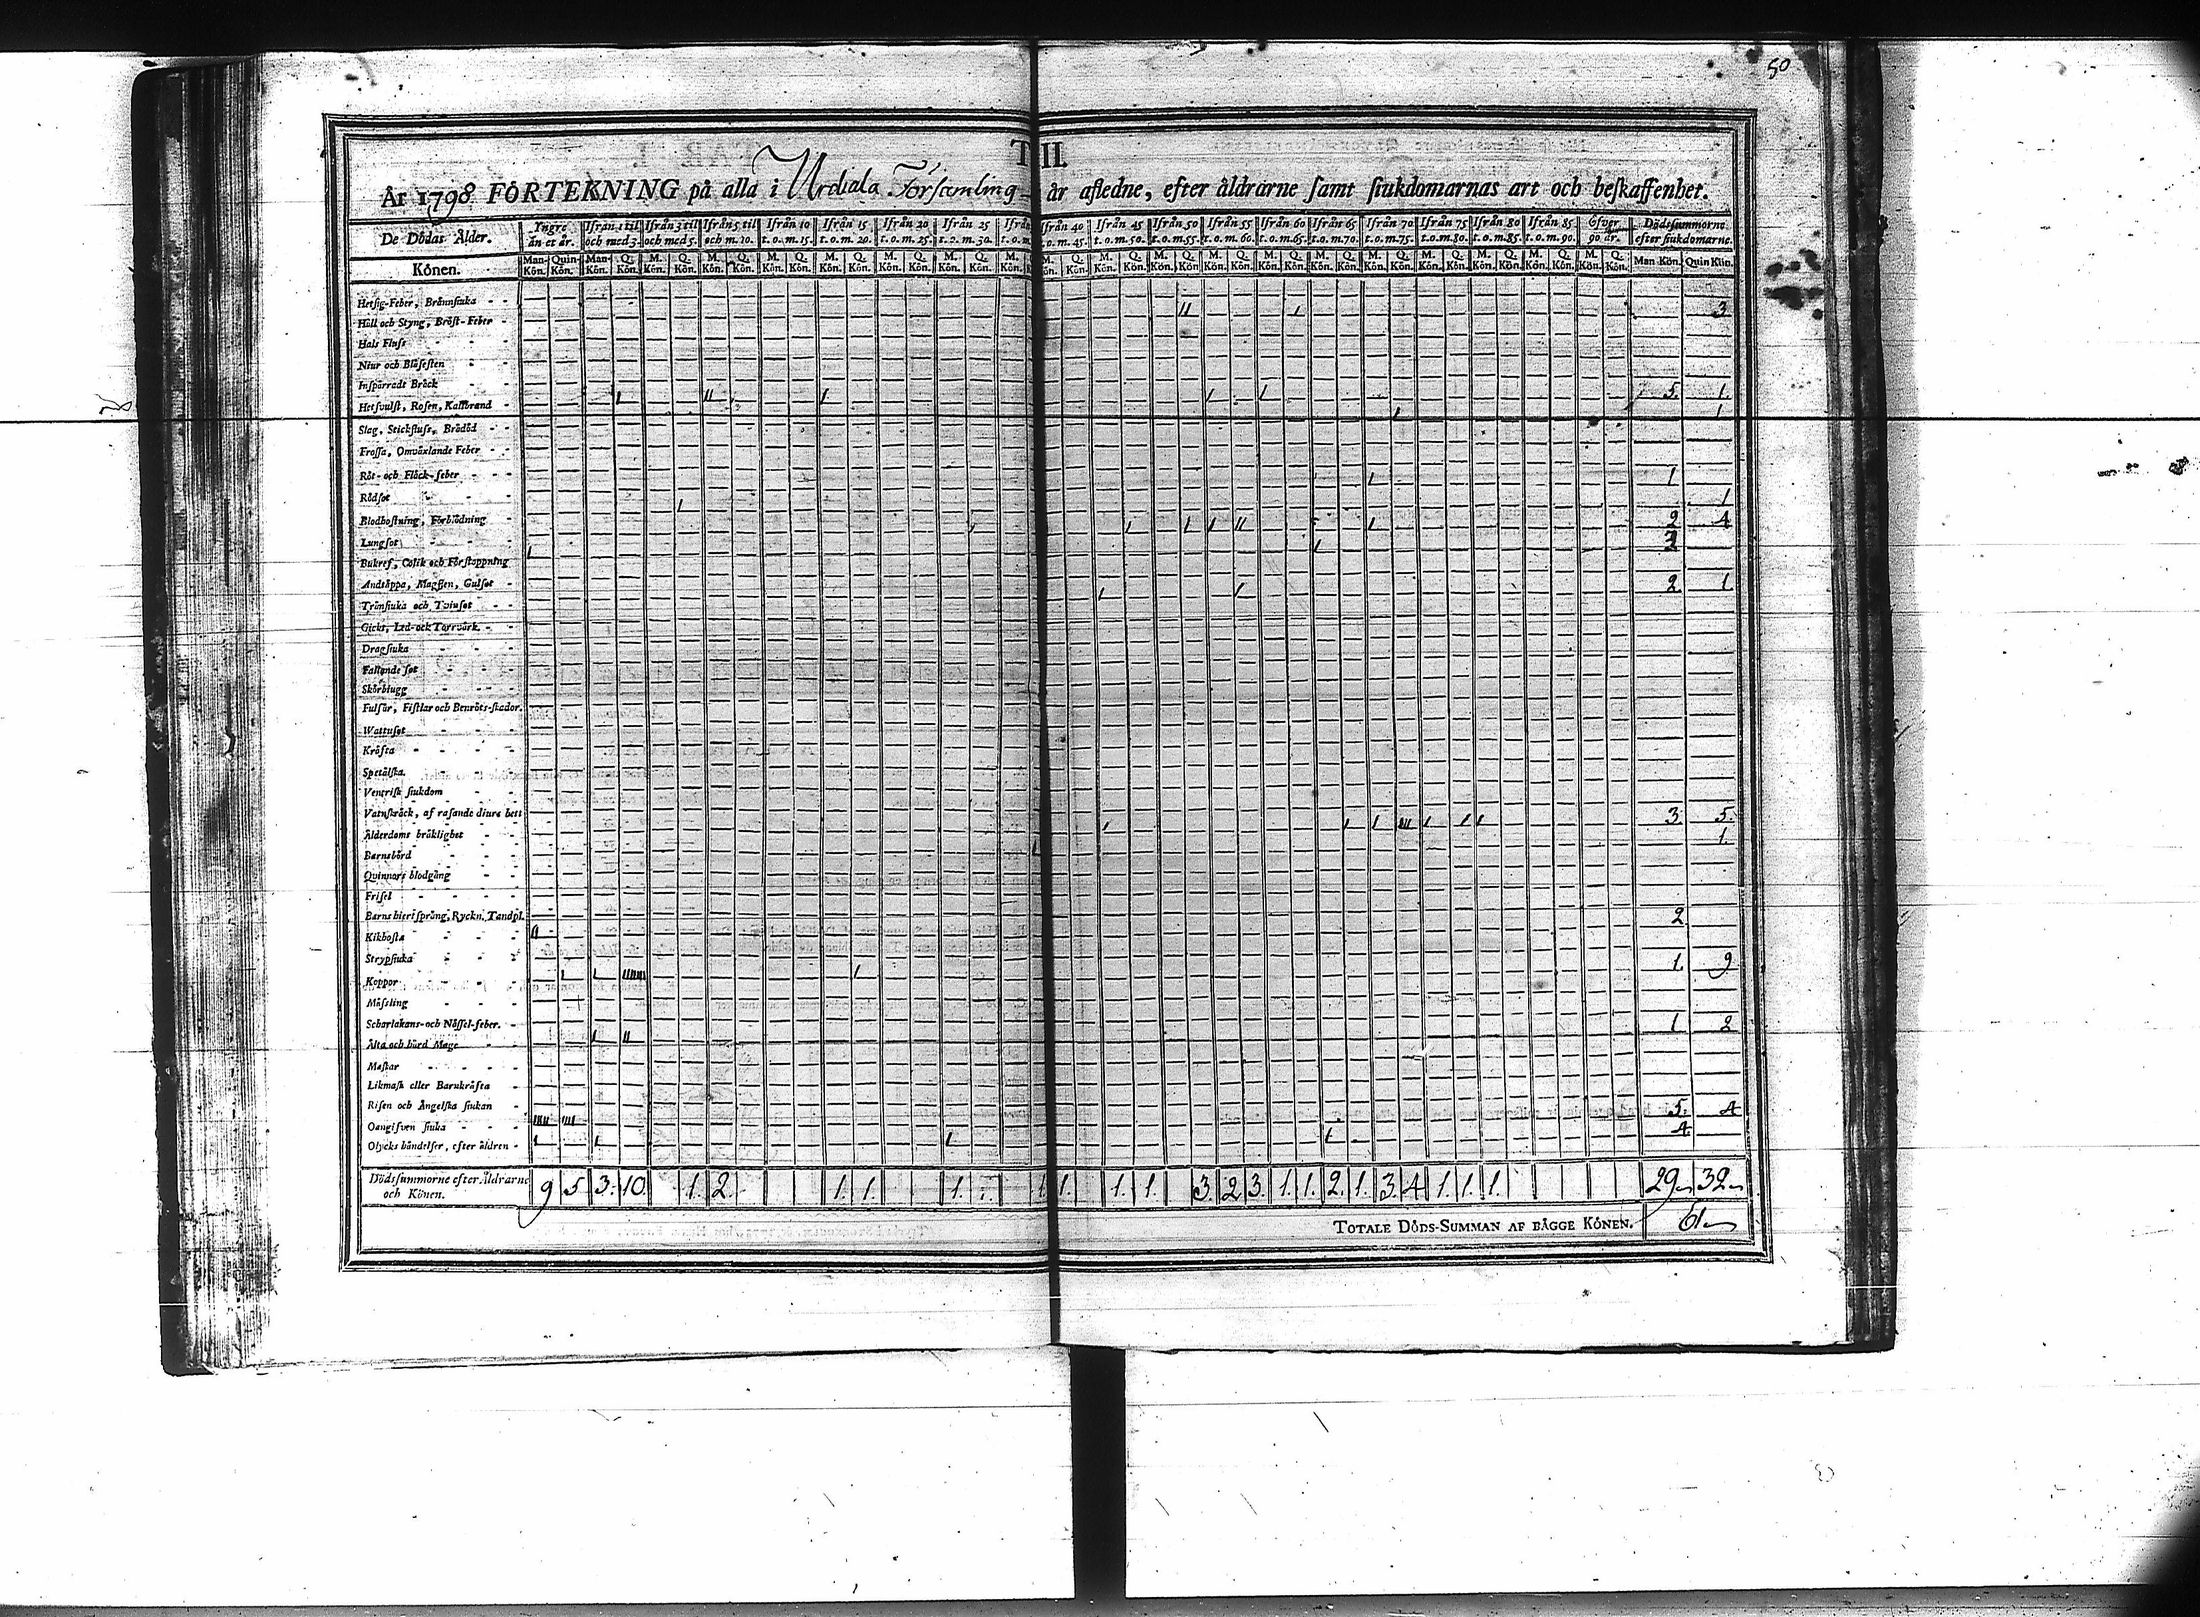 50
T II.
År 1798 FÖRTEKNING på alla i Urdiala Församling år afledne, efter åldrarne samt siukdomarnas art och beskaffenhet.
De Dödas Ålder. Yngre än et år. Ifrån 1 til och med 3. Ifrån 3 til och med 5. Ifrån 5 til och m. 10. Ifrån 10 t.o.m. 15. Ifrån 15 t.o.m. 20. Ifrån 20 t.o.m. 25. Ifrån 25 t.o.m. 30. Ifrån 40 t.o.m. 45. Ifrån 45 t.o.m. 50. Ifrån 50 t.o.m. 55. Ifrån 55 t.o.m. 60. Ifrån 60 t.o.m. 65. Ifrån 65 t.o.m. 70. Ifrån 70 t.o.m. 75. Ifrån 75 t.o.m. 80. Ifrån 80 t.o.m. 85. Ifrån 85 t.o.m. 90. Öfver 90 år. Dödssummorne efter siukdomarne.
Könen. Man-Kön. Quin-Kön. Man-Kön. Q. Kön. M. Kön. Q. Kön. M. Kön. Q. Kön. M. Kön. Q. Kön. M. Kön. Q. Kön. M. Kön. Q. Kön. M. Kön. Q. Kön. M. Kön. Q. Kön. M. Kön. Q. Kön. M. Kön. Q. Kön. M. Kön. Q. Kön. M. Kön. Q. Kön. M. Kön. Q. Kön. M. Kön. Q. Kön. M. Kön. Q. Kön. M. Kön. Q. Kön. M. Kön. Q. Kön. M. Kön. Q. Kön. Man Kön. Quin Kön.
Hetsig-Feber, Brännsiuka
Håll och Styng, Bröst-Feber II I 3
Hals Fluss
Niur och Blåsesten
Inspärradt Bråck
Hetsvulst, Rosen, Kallbrand I II I I I 5. 1.
Slag, Stickfluss, Brådöd I 1
Frossa, Omväxlande Feber
Röt- och Fläck-feber
Rödsot I 1
Blodhostning, Förblödning I 1
Lungsot I I I I II I 2 4
Bukref, Colik och Förstoppning I I
Andtäppa, Magsjen, Gulsot
Tränsiuka och Tvinsot I I 2 1
Gickt, Led-och Torrvärk.
Dragsiuka
Fallande sot
Skörbiugg
Fulsår, Fistlar och Benröts-skador.
Wattusot
Kräfta
Spetälska.
Venerisk siukdom
Vatuskräck, af rasande diurs bett
Ålderdoms bräklighet I I I IIII I I I 3. 5.
Barnsbörd 1.
Quinnors blodgång
Frisel
Barns hiertsprång, Ryckn. Tandpl.
Kikhosta II 2
Strypsiuka
Koppor I I I 1. 9
Mässling
Scharlakans-och Nässel-feber.
Älta och hård Mage I II 1 2
Maskar
Likmask eller Barnkräfta
Risen och Ångelska siukan
Oangifven siuka IIIII IIII 5. 4
Olycks händelser, efter åldren I I I I 4
Dödssummorne efter Åldrarne och Könen. 9 5 3. 10. 1. 2. 1. 1. 1. 1. 1. 1. 1. 3. 2 3. 1. 1. 2. 1. 3. 4 1. 1. 1. 29 32
TOTALE DÖDS-SUMMAN AF BÄGGE KÖNEN. 61